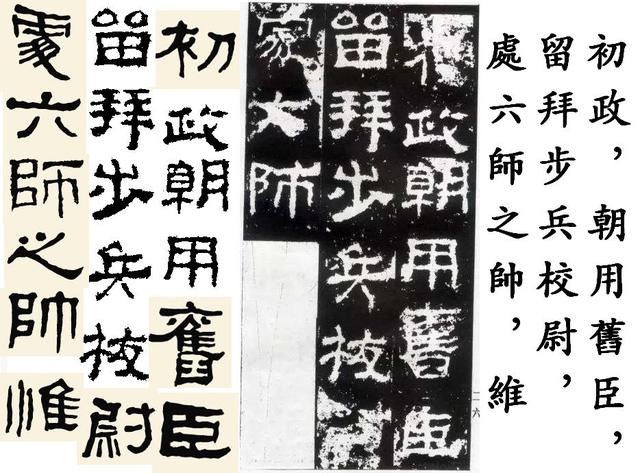 初政，朝用舊臣，
留拜步兵校尉，
處六師之帥，維
二六
初政朝用舊臣
留拜步兵校
六師
初政朝用舊臣
留拜步兵校尉
處六師之帥惟